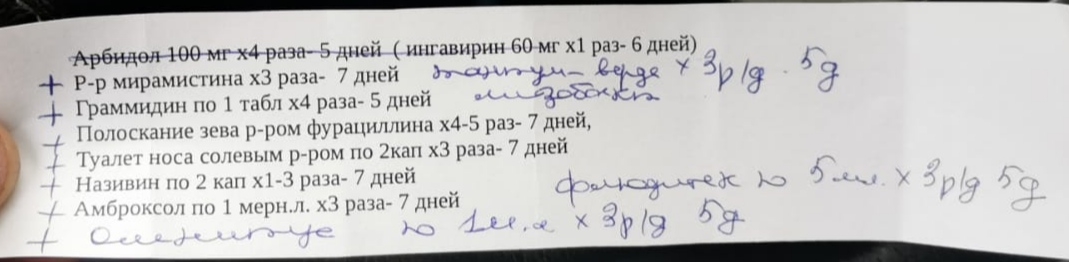 Арбидол 100 мг х4 раза- 5 дней ( ингавирин 60 мг х1 раз- 6 дней)
+ Р-р мирамистина х3 раза- 7 дней тантум-верде х 3р/д. 5д
+ Граммидин по 1 табл х4 раза- 5 дней лизобакт
+ Полоскание зева р-ром фурациллина х4-5 раз- 7 дней,
+ Туалет носа солевым р-ром по 2кап х3 раза- 7 дней
+ Називин по 2 кап х1-3 раза- 7 дней флюдитек по 5мл. х 3р/д 5д
+ Амброксол по 1 мерн.л. х3 раза- 7 дней
+ по 1м.л х 3р/д 5д